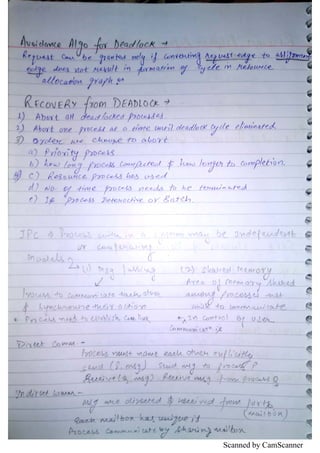 Avoidance Algo for Deadlock →
Request can be granted only if converting request edge to assignment
edge does not result in formation of cycle in resource
allocation graph
RECOVERY from DEADLOCK →
1) Abort all deadlocked processes
2) Abort one process at a time until deadlock cycle eliminated
3) Order we choose to abort
a) Priority process
b) how long process computed & how longer to completion.
c) Resource process has used
d) No. of time process needs to be terminated
e) Is process Interactive or Batch.
IPC → Process within a system may be independent
or cooperating
Models
(1) Msg Passing (2) Shared Memory
Process to communicate each other Area of memory shared
& synchronize their action among processes that
wish to communicate
Process need to establish comm link In control of user
Direct Comm -
Process must name each other explicitly
send (P, msg) Send msg to process P
Receive(Q, msg) Receive msg from process Q
Indirect Comm -
msg are directed & received from ports
(mailbox)
Each mailbox has unique id
Process communicate by sharing mailbox
Scanned by CamScanner